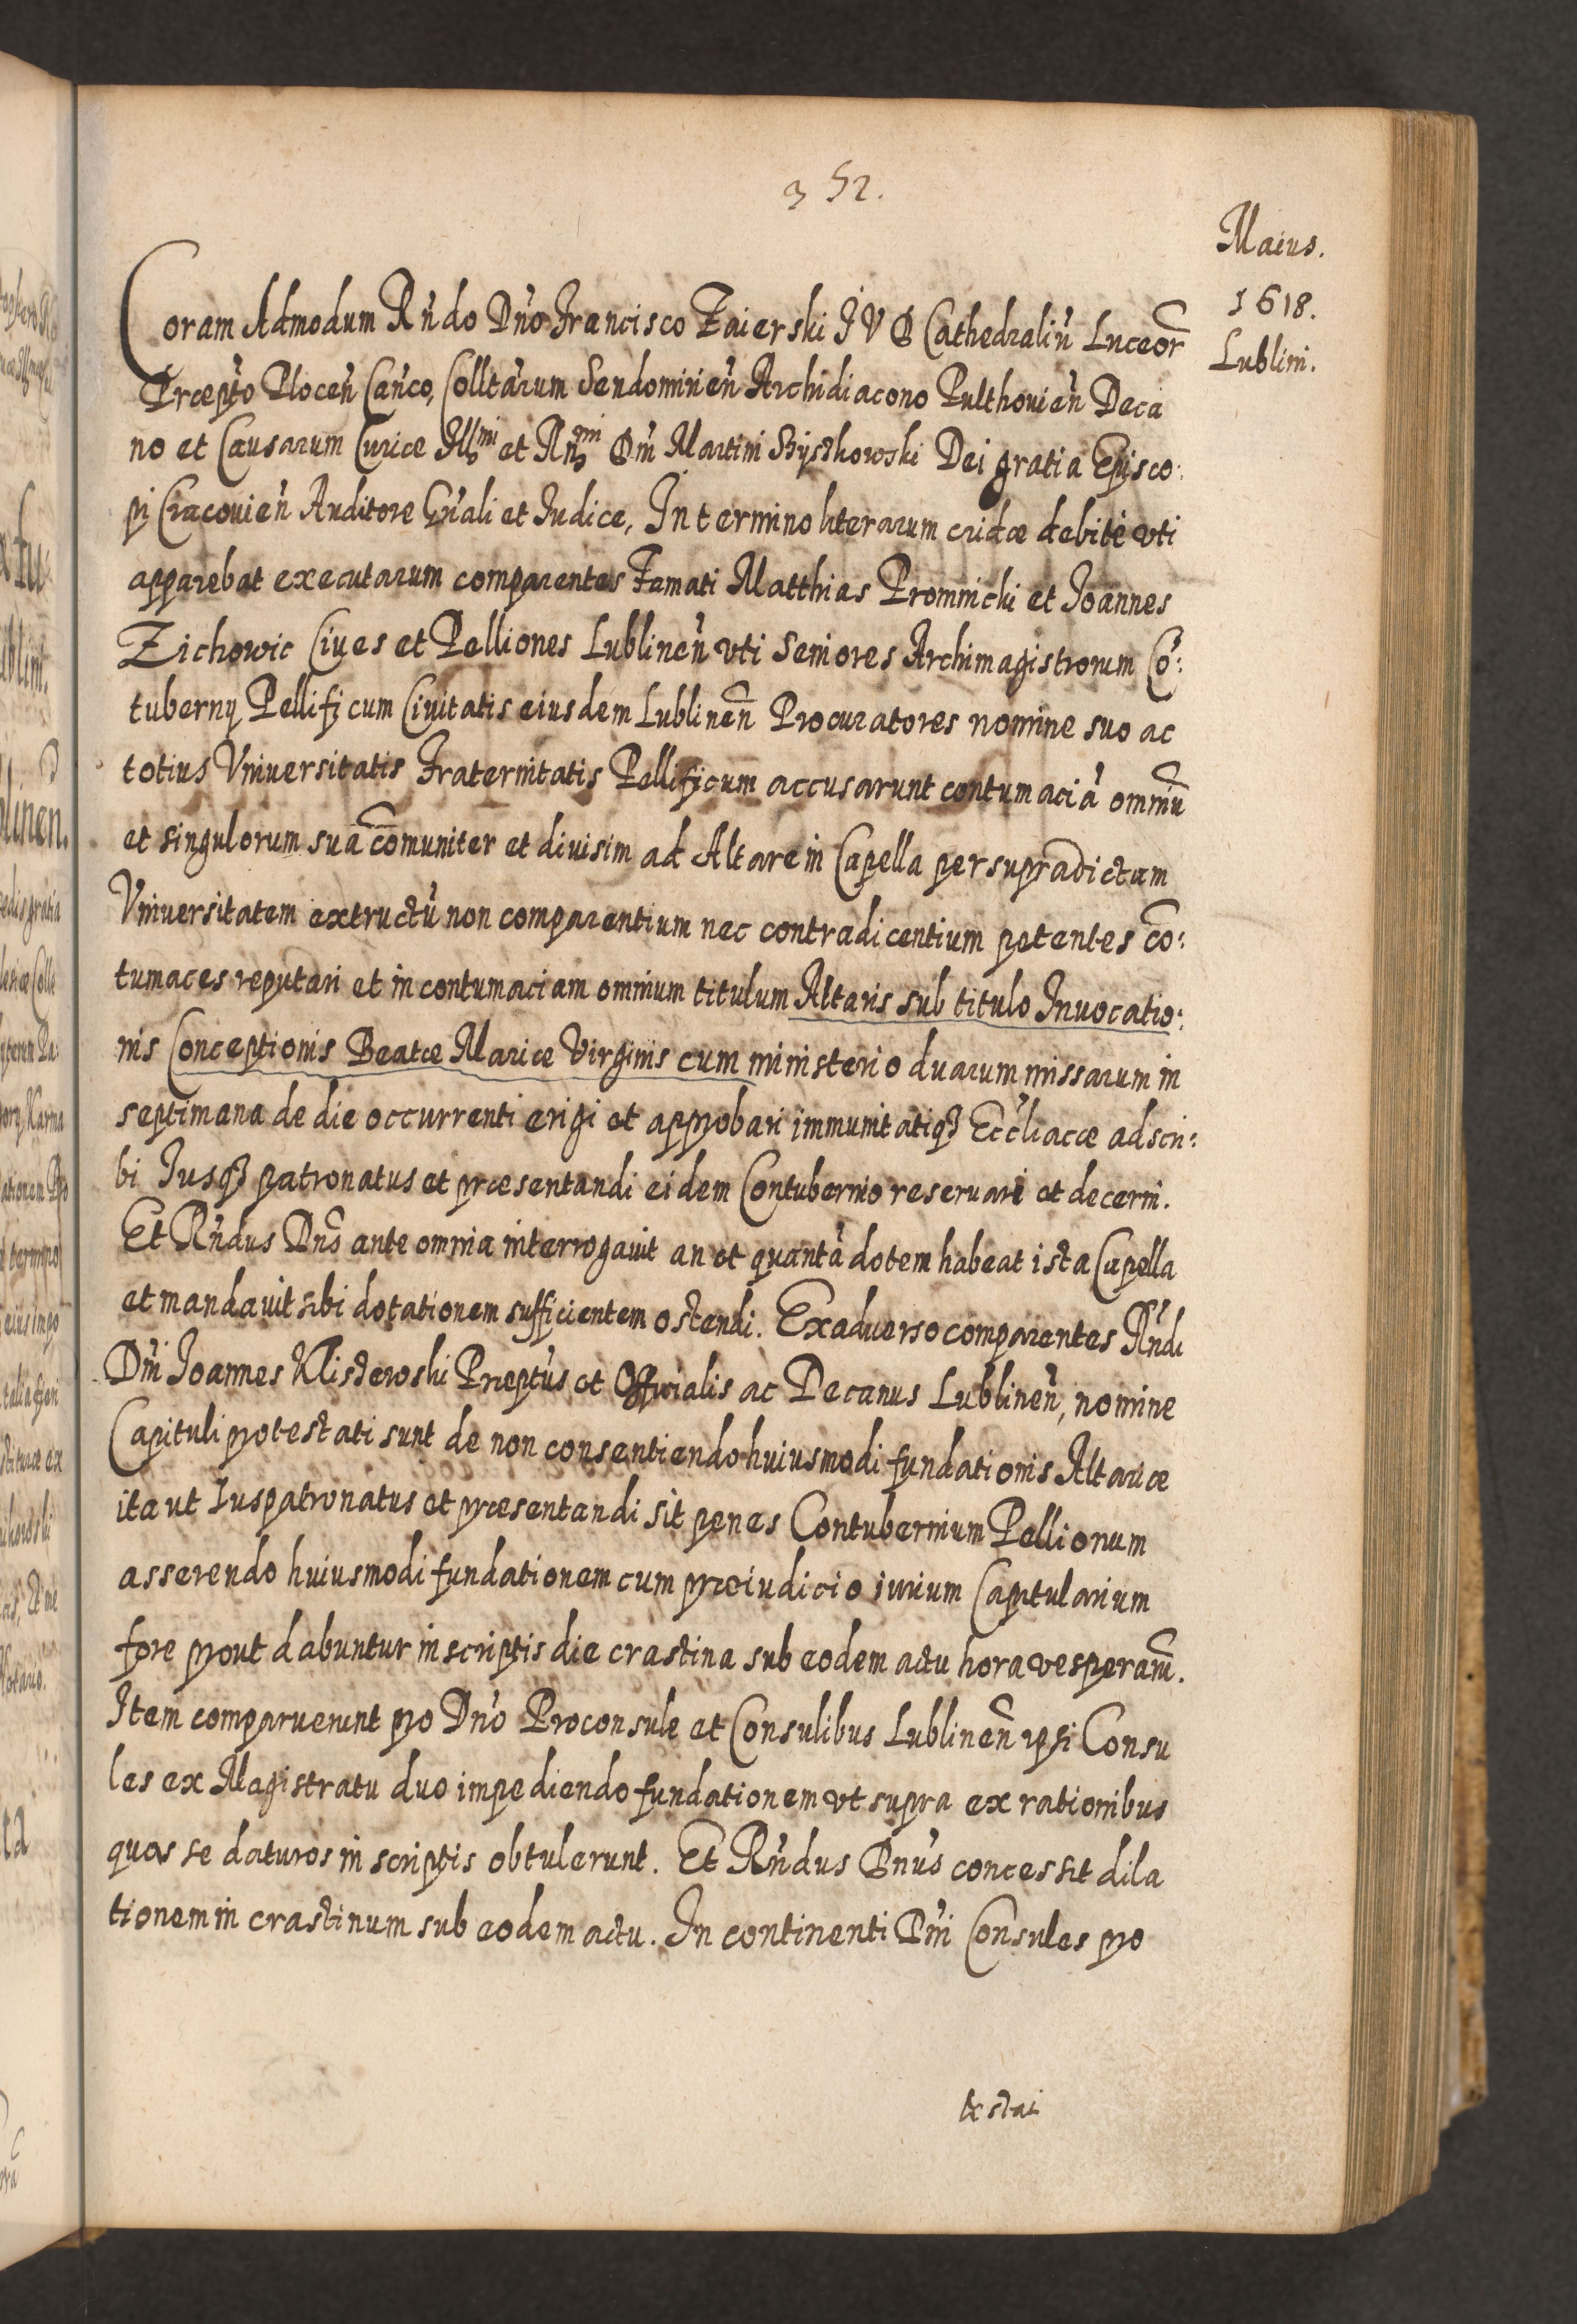 352.
Maius.
1618.
Lublini.
Coram Admodum Rńdo Dńo Francisco Zaierski I V D Cathedraliũ Luceoȓ
Prępto Plocen̄ Canco, Colltarum Sendomirien̄ Archidiacono Pulthovien̄ Deca
no et Causarum Curiæ Illmi et Rńmi Dńi Martini Szyszkowski Dei gratia Episco:
pi Cracovien̄ Auditore Gńali et Iudice, In termino literarum cridæ debitè vti
apparebat executarum comparentes Famati Matthias Promnicki et Ioannes
Zichowic Cives et Pelliones Lublinen̄ vti Seniores Archimagistrorum Cõ:
tubernij Pellificum Civitatis eiusdem Lublinen̄ Procuratores nomine suo ac
totius Vniversitatis Fraternitatis Pellificum accusarunt contumaciã omniũ
et singulorum sua com̄uniter et divisim ad Altare in Capella per supradictam
Vniversitatem extructũ non comparentium nec contradicentium petentes cõ:
tumaces reputari et in contumaciam omnium titulum Altaris sub titulo Invocatio:
nis Conceptionis Beatæ Mariæ Virginis cum ministerio duarum missarum in
septimana de die occurrenti erigi et approbari immunitatiqꝫ Eccliacæ adscri:
bi Iusqꝫ patronatus et præsentandi eidem Contubernio reservari et decerni.
Et Rńdus Dńs ante omnia interrogavit an et quantã dotem habeat ista Capella
et mandavit sibi dotationem sufficientem ostendi. Ex adverso comparentes Rńdi
Dńi Ioannes Klisztewski Præptus et Officialis ac Decanus Lublinen̄, nomine
Capituli protestati sunt de non consentiendo huiusmodi fundationis Altariæ
ita vt Ius patronatus et præsentandi sit penes Contubernium Pellionum
asserendo huiusmodi fundationem cum præiudicio iurium Capitularium
fore prout dabuntur in scriptis die crastina sub eodem actu hora vesperarũ.
Item comparuerunt pro Dńo Proconsule et Consulibus Lublinen̄ ipsi Consu
les ex Magistratu duo impediendo fundationem vt supra ex rationibus
quas se daturos in scriptis obtulerunt. Et Rńdus Dńus concessit dila
tionem in crastinum sub eodem actu. In continenti Dńi Consules pro
testati